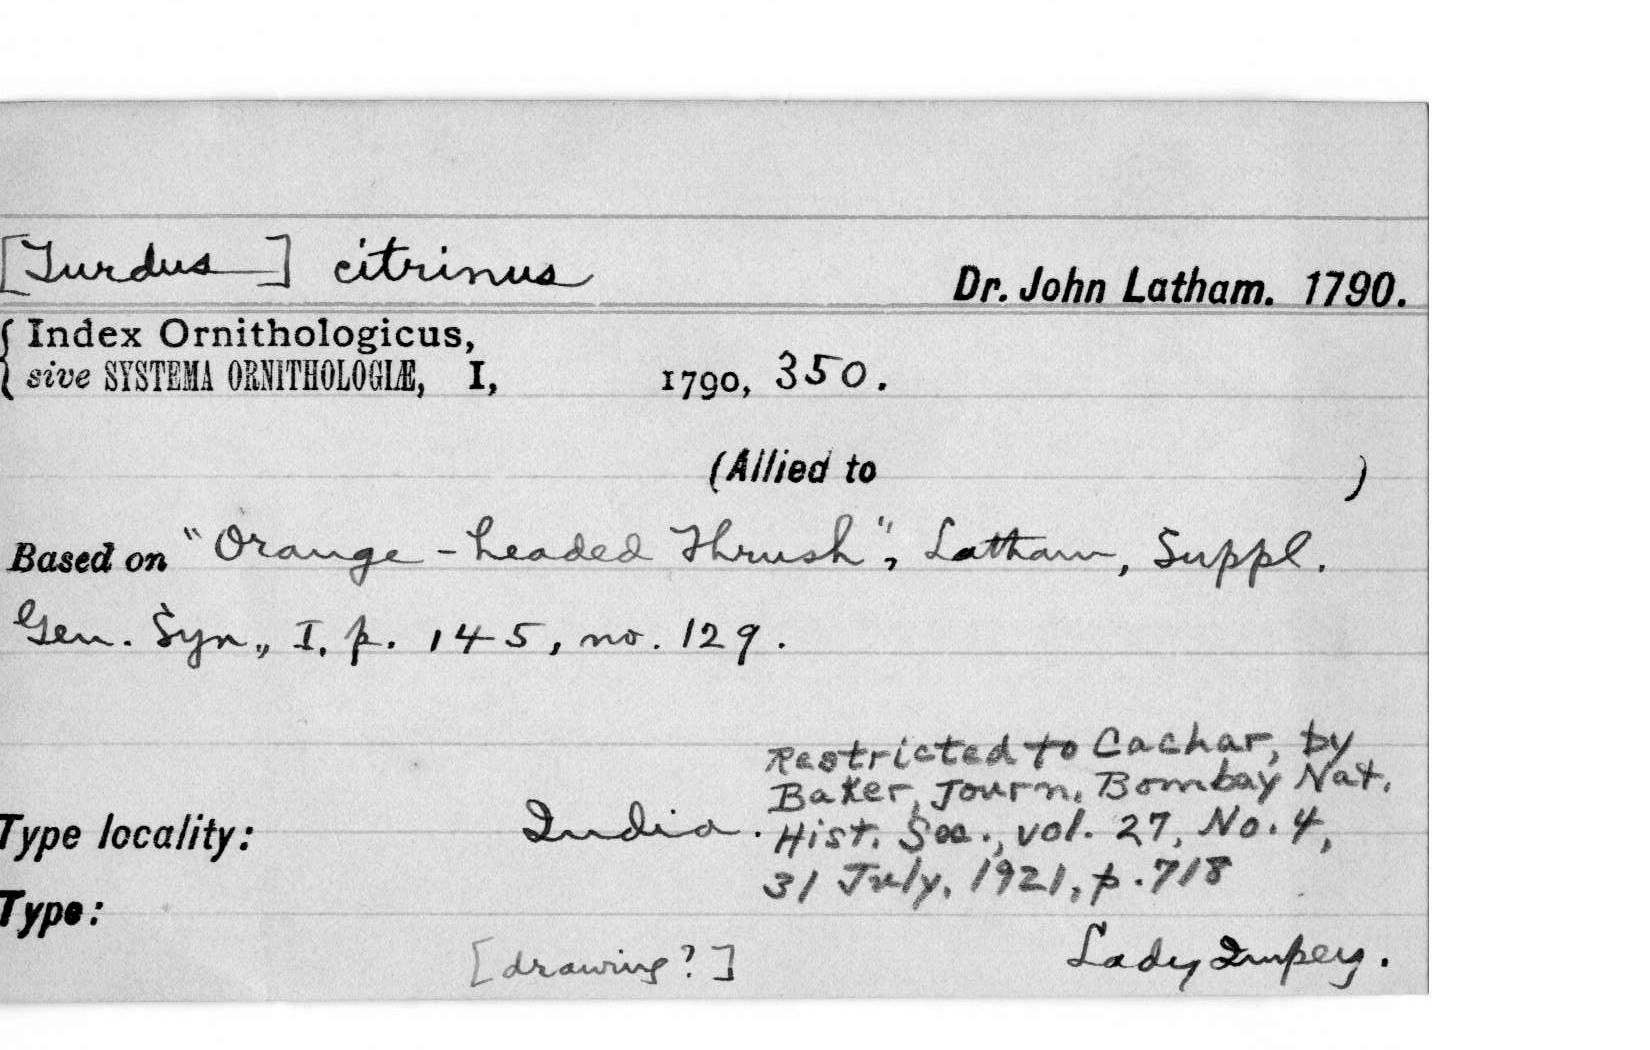 [Turdus] citrinus Dr. John Latham. 1790.
{ Index Ornithologicus,
sive SYSTEMA ORNITHOLOGIÆ, I, 1790, 350.
(Allied to )
Based on "Orange-headed Thrush", Latham, Suppl.
Gen. Syn., I, p. 145, no. 129.
Restricted to Cachar, by
Baker, Journ. Bombay Nat.
Type locality: India. Hist. Soc., vol. 27, No. 4,
31 July, 1921, p. 718
Type:
[drawing?] Lady Impey.